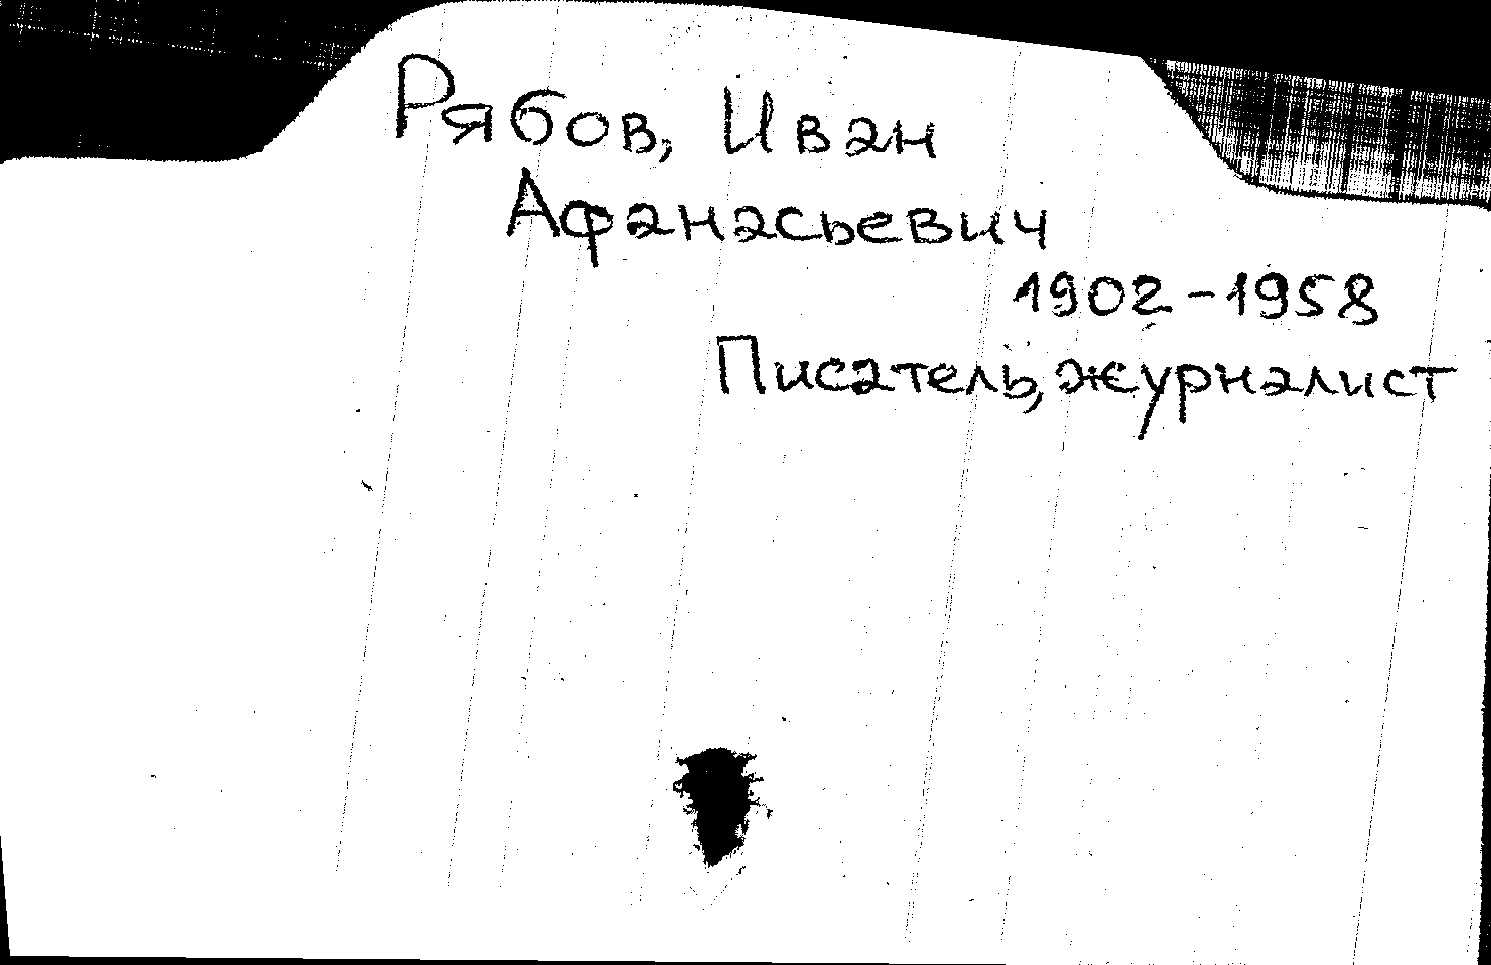 Рябов, Иван
Афанасьевич
1902-1958
Писатель, журналист